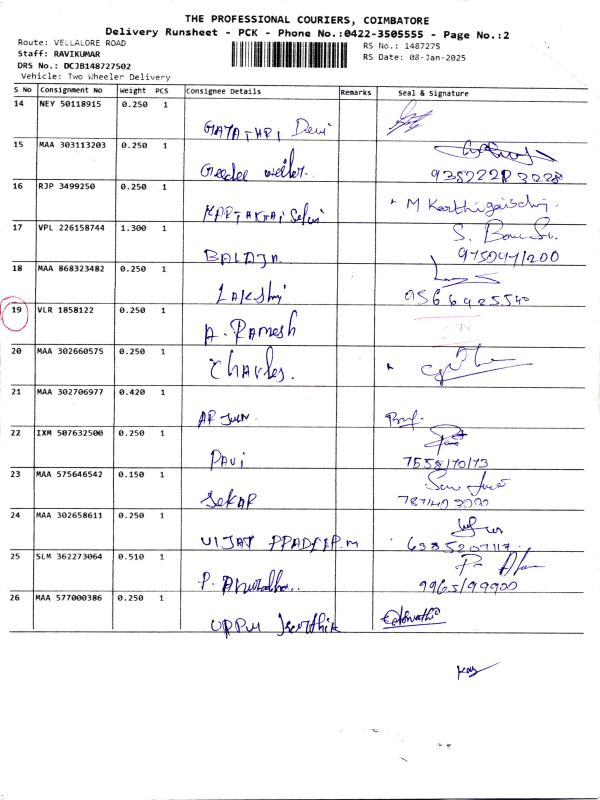 THE PROFESSIONAL COURIERS, COIMBATORE
Delivery Runsheet - PCK - Phone No.:0422-3505555 - Page No.:2
Route: VELLALORE ROAD
RS No.: 1487275
Staff: RAVIKUMAR
RS Date: 08-Jan-2025
DRS No.: DCJB148727502
Vehicle: Two Wheeler Delivery
S No Consignment No Weight PCS Consignee Details Remarks Seal & Signature
14 NEY 50118915 0.250 1
GAYATHRI Devi
15 MAA 303113203 0.250 1
16 RJP 3499250 0.250 1
KARTHIKAISelvi
17 VPL 226158744 1.300 1
BALAJI
18 MAA 868323482 0.250 1
Lakshmi
19 VLR 1858122 0.250 1
A. Ramesh
20 MAA 302660575 0.250 1
Charles.
21 MAA 302706977 0.420 1
ARJUN.
22 IXM 507632500 0.250 1
PAVI
23 MAA 575646542 0.150 1
SEKAR
24 MAA 302658611 0.250 1
VIJAY PRADEEP.M
25 SLM 362273064 0.510 1
P. Anuradha.
26 MAA 577000386 0.250 1